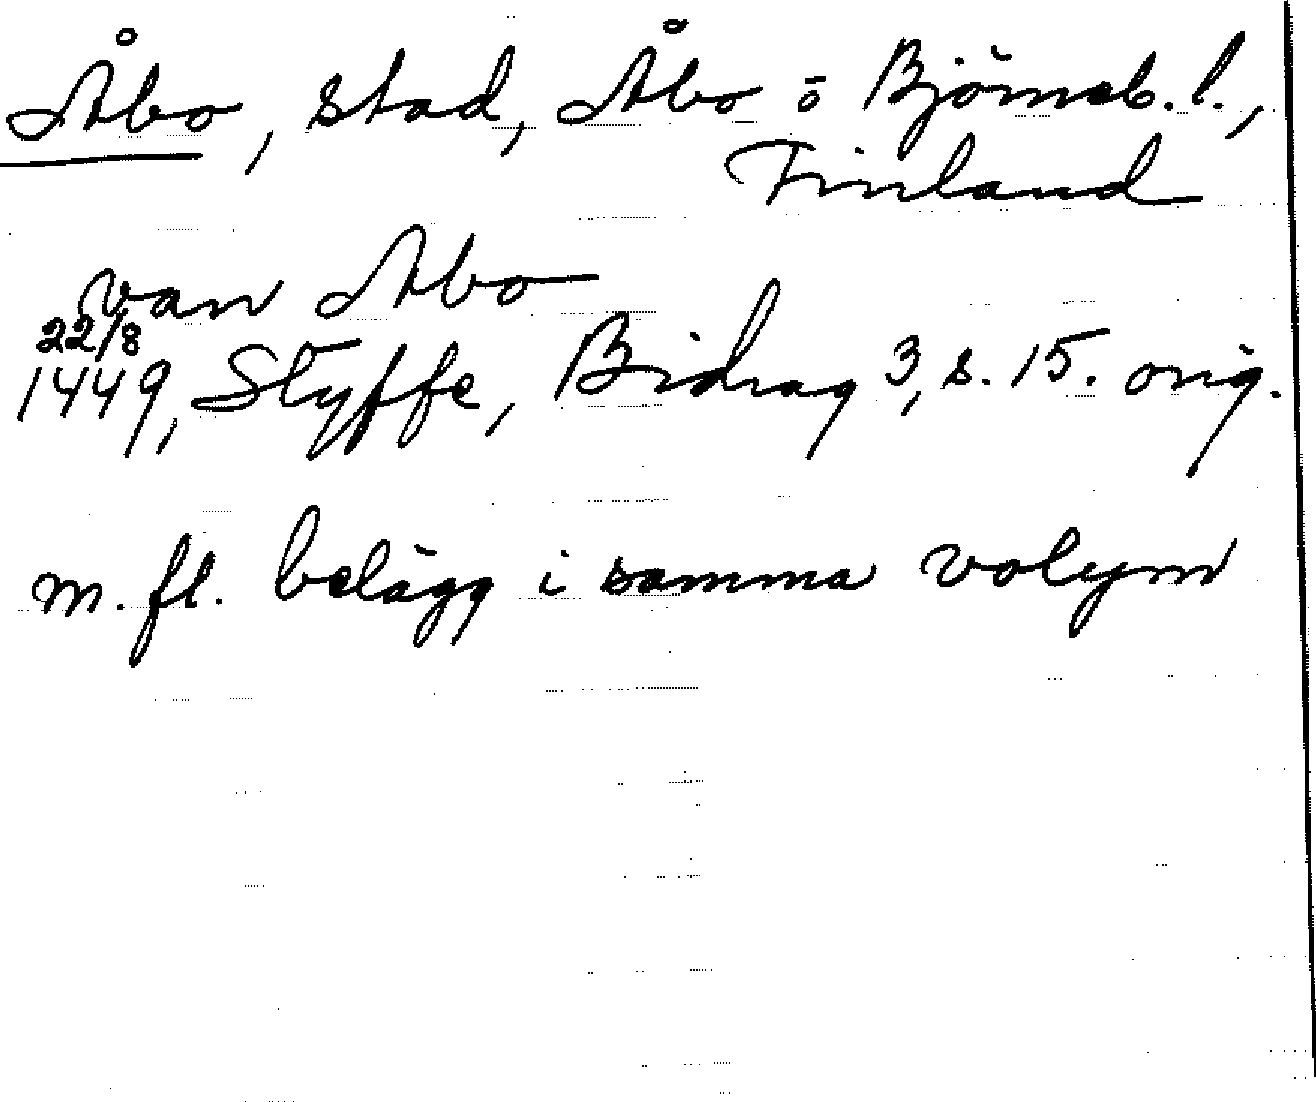 Åbo, stad, Åbo o Björneb. l.,
Finland
van Abo
22/8
1449, Styffe, Bidrag 3, s. 15. orig.
m. fl. belägg i samma volym